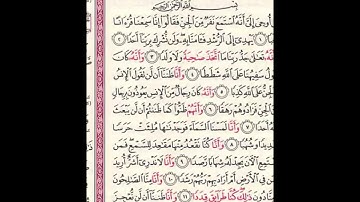 بِسْمِ اللَّهِ الرَّحْمَٰنِ الرَّحِيمِ
أُوحِيَ إِلَيَّ أَنَّهُ اسْتَمَعَ نَفَرٌ مِنَ الْجِنِّ فَقَالُوا إِنَّا سَمِعْنَا قُرْءَانًا
١ يَهْدِي إِلَى الرُّشْدِ فَـَٔامَنَّا بِهِ وَلَنْ نُشْرِكَ بِرَبِّنَا أَحَدًا ٢
وَأَنَّهُ تَعَالَىٰ جَدُّ رَبِّنَا مَا اتَّخَذَ صَاحِبَةً وَلَا وَلَدًا ٣ وَأَنَّهُ كَانَ
يَقُولُ سَفِيهُنَا عَلَى اللَّهِ شَطَطًا ٤ وَأَنَّا ظَنَنَّا أَنْ لَنْ تَقُولَ الْإِنْسُ
الْجِنُّ عَلَى اللَّهِ كَذِبًا ٥ وَأَنَّهُ كَانَ رِجَالٌ مِنَ الْإِنْسِ يَعُوذُونَ بِرِجَالٍ
الْجِنِّ فَزَادُوهُمْ رَهَقًا ٦ وَأَنَّهُمْ ظَنُّوا كَمَا ظَنَنْتُمْ أَنْ لَنْ يَبْعَثَ
اللَّهُ أَحَدًا ٧ وَأَنَّا لَمَسْنَا السَّمَاءَ فَوَجَدْنَاهَا مُلِئَتْ حَرَسًا
شَدِيدًا وَشُهُبًا ٨ وَأَنَّا كُنَّا نَقْعُدُ مِنْهَا مَقَاعِدَ لِلسَّمْعِ فَمَنْ
يَسْتَمِعِ الْآنَ يَجِدْ لَهُ شِهَابًا رَصَدًا ٩ وَأَنَّا لَا نَدْرِي أَشَرٌّ أُرِيدَ
بِمَنْ فِي الْأَرْضِ أَمْ أَرَادَ بِهِمْ رَبُّهُمْ رَشَدًا ١٠ وَأَنَّا مِنَّا الصَّالِحُونَ
دُونَ ذَٰلِكَ كُنَّا طَرَائِقَ قِدَدًا ١١ وَأَنَّا ظَنَنَّا أَنْ لَنْ نُعْجِزَ